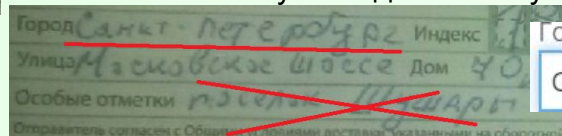 Город Санкт-Петербург Индекс
Улица Московское шоссе Дом 40
Особые отметки поселок Шушары
Отправитель согласен с Общими условиями доставки, указанными на оборотной